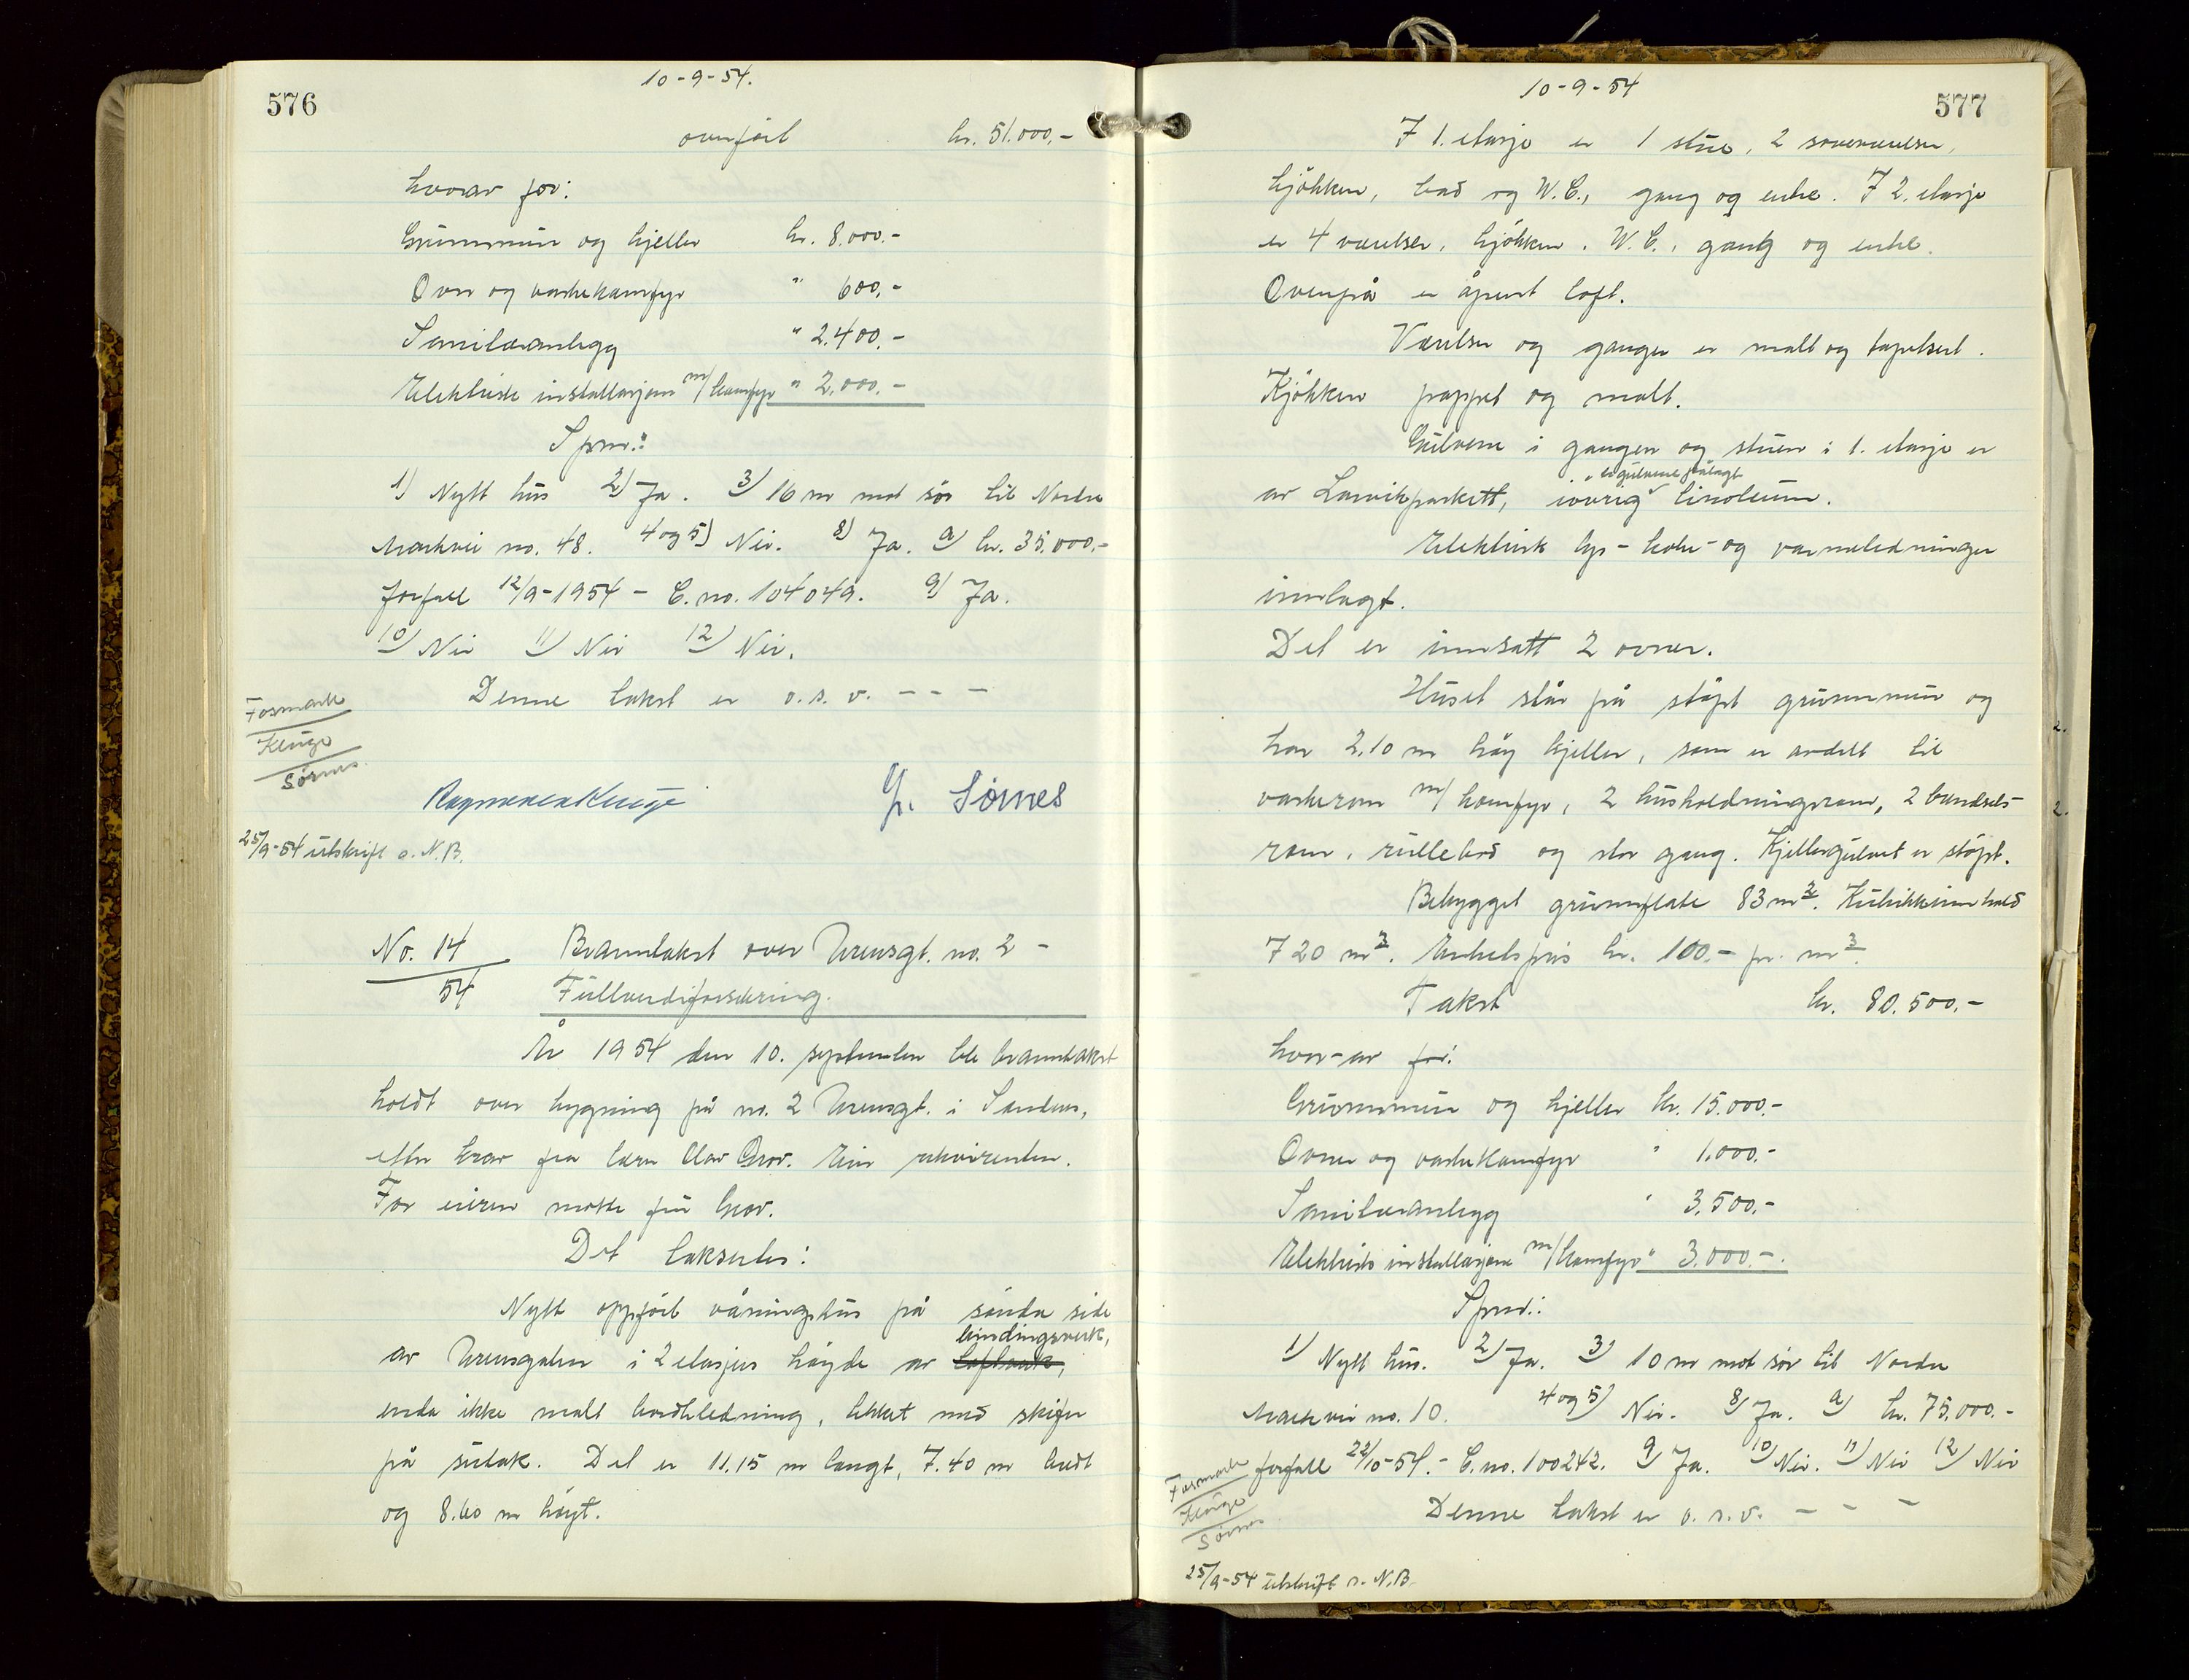 576
10-9-54.
overført kr. 51.000,-
hvorav for:
Grunnmur og kjeller kr. 8.000.-
Ovn og vaskekomfyr " 600,-
Sanitæranlegg " 2.400.-
Elektriske installasjoner m/komfyr " 2.000.-
Spm.:
1) Nytt hus 2) Ja. 3) 16 m mot sør til Nordre
Markvei no. 48. 4 og 5) Nei. 8) Ja. a) kr. 35.000.-
forfall 12/9-1954 - C.no. 104049. 9) Ja.
10) Nei 11) Nei 12) Nei.
Denne takst er o.s.v. - - -
Fosmark
Kluge
Sørnes.
Rasmus Kluge G. Sørnes
25/9-54 utskrift s. N.B.
No. 14 Branntakst over Urensgt. no. 2 -
54 Fullverdiforsikring.
År 1954 den 10. september ble branntakst
holdt over bygning på no. 2 Urensgt. i Sandnes,
etter krav fra lærer Olav Grov. Eier rekvirenten.
For eieren møtte fru Grov.
Det takseres:
Nytt oppført våningshus på søndre side
bindingsverk,
av Urensgaten i 2 etasjers høyde av laftverk,
enda ikke malt bordkledning, tekket med skifer
på sutak. Det er 11.15 m langt, 7.40 m bredt
og 8.60 m høyt.
577
10-9-54
I 1. etasje er 1 stue, 2 soveværelser,
kjøkken, bad og W.C., gang og entre. I 2. etasje
er 4 værelser, kjøkken, W.C., gang og entre.
Ovenpå er åpent loft.
Værelser og ganger er malt og tapetsert.
Kjøkken pappet og malt.
Gulvene i gangen og stuen i 1. etasje er
er gulvene pålagt
av Larvikparkett, iøvrig linoleum.
Elektrisk lys- koke- og varmeledninger
innlagt.
Det er innsatt 2 ovner.
Huset står på støpt grunnmur og
har 2.10 m høy kjeller, som er avdelt til
vaskerom m/komfyr, 2 husholdningsrom, 2 brendsels-
rom, rullebod og stor gang. Kjellergulvet er støpt.
Bebygget grunnflate 83 m2. Kubikkinnhold
720 m3. Enhetspris kr. 100.- pr. m3.
Takst kr. 80.500.-
hvor-av for:
Grunnmur og kjeller kr. 15.000.-
Ovner og vaskekomfyr " 1.000.-
Sanitæranlegg " 3.500.-
Elektriske installasjoner m/komfyr " 3.000.-.
Spm.:
1) Nytt hus. 2) Ja. 3) 10 m mot sør til Nordre
Markvei no. 10. 4 og 5) Nei. 8) Ja. a) kr. 75.000.-
forfall 22/10-54.- C.no. 100242. 9) Ja. 10) Nei. 11) Nei 12) Nei
Fosmark
Kluge
Sørnes
Denne takst er o.s.v. - - -
25/9-54 utskrift s. N.B.
2.
2.